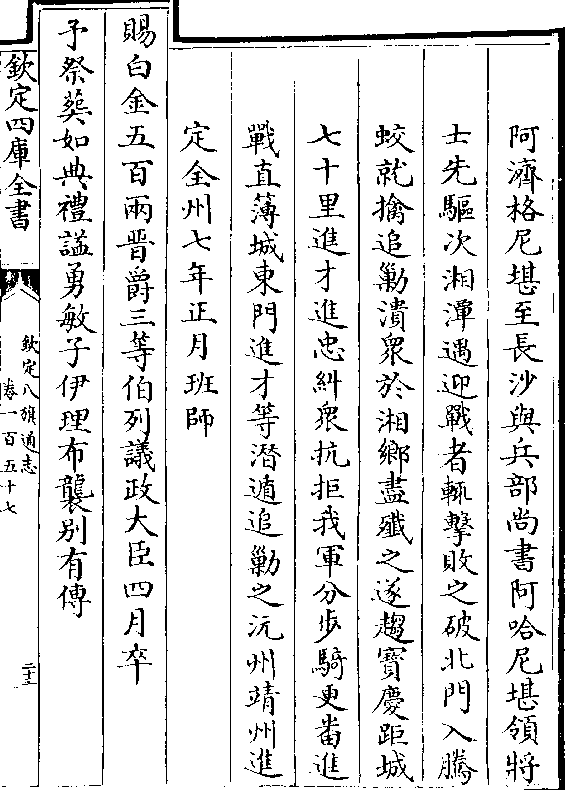 阿濟格尼堪至長沙與兵部尚書阿哈尼堪領將
士先驅次湘潭遇迎戰者輒擊敗之破北門入騰
蛟就擒追勦潰衆於湘鄉盡殲之遂趨寶慶距城
七十里進才進忠糾衆抗拒我軍分步騎更畨進
戰直薄城東門進才等潛遁追勦之沅州靖州進
定全州七年正月班師
賜白金五百兩晋爵三等伯列議政大臣四月卒
予祭葬如典禮諡勇敏子伊理布襲别有傳
欽定四庫全書
欽定八旗通志
卷一百五十七
二十三